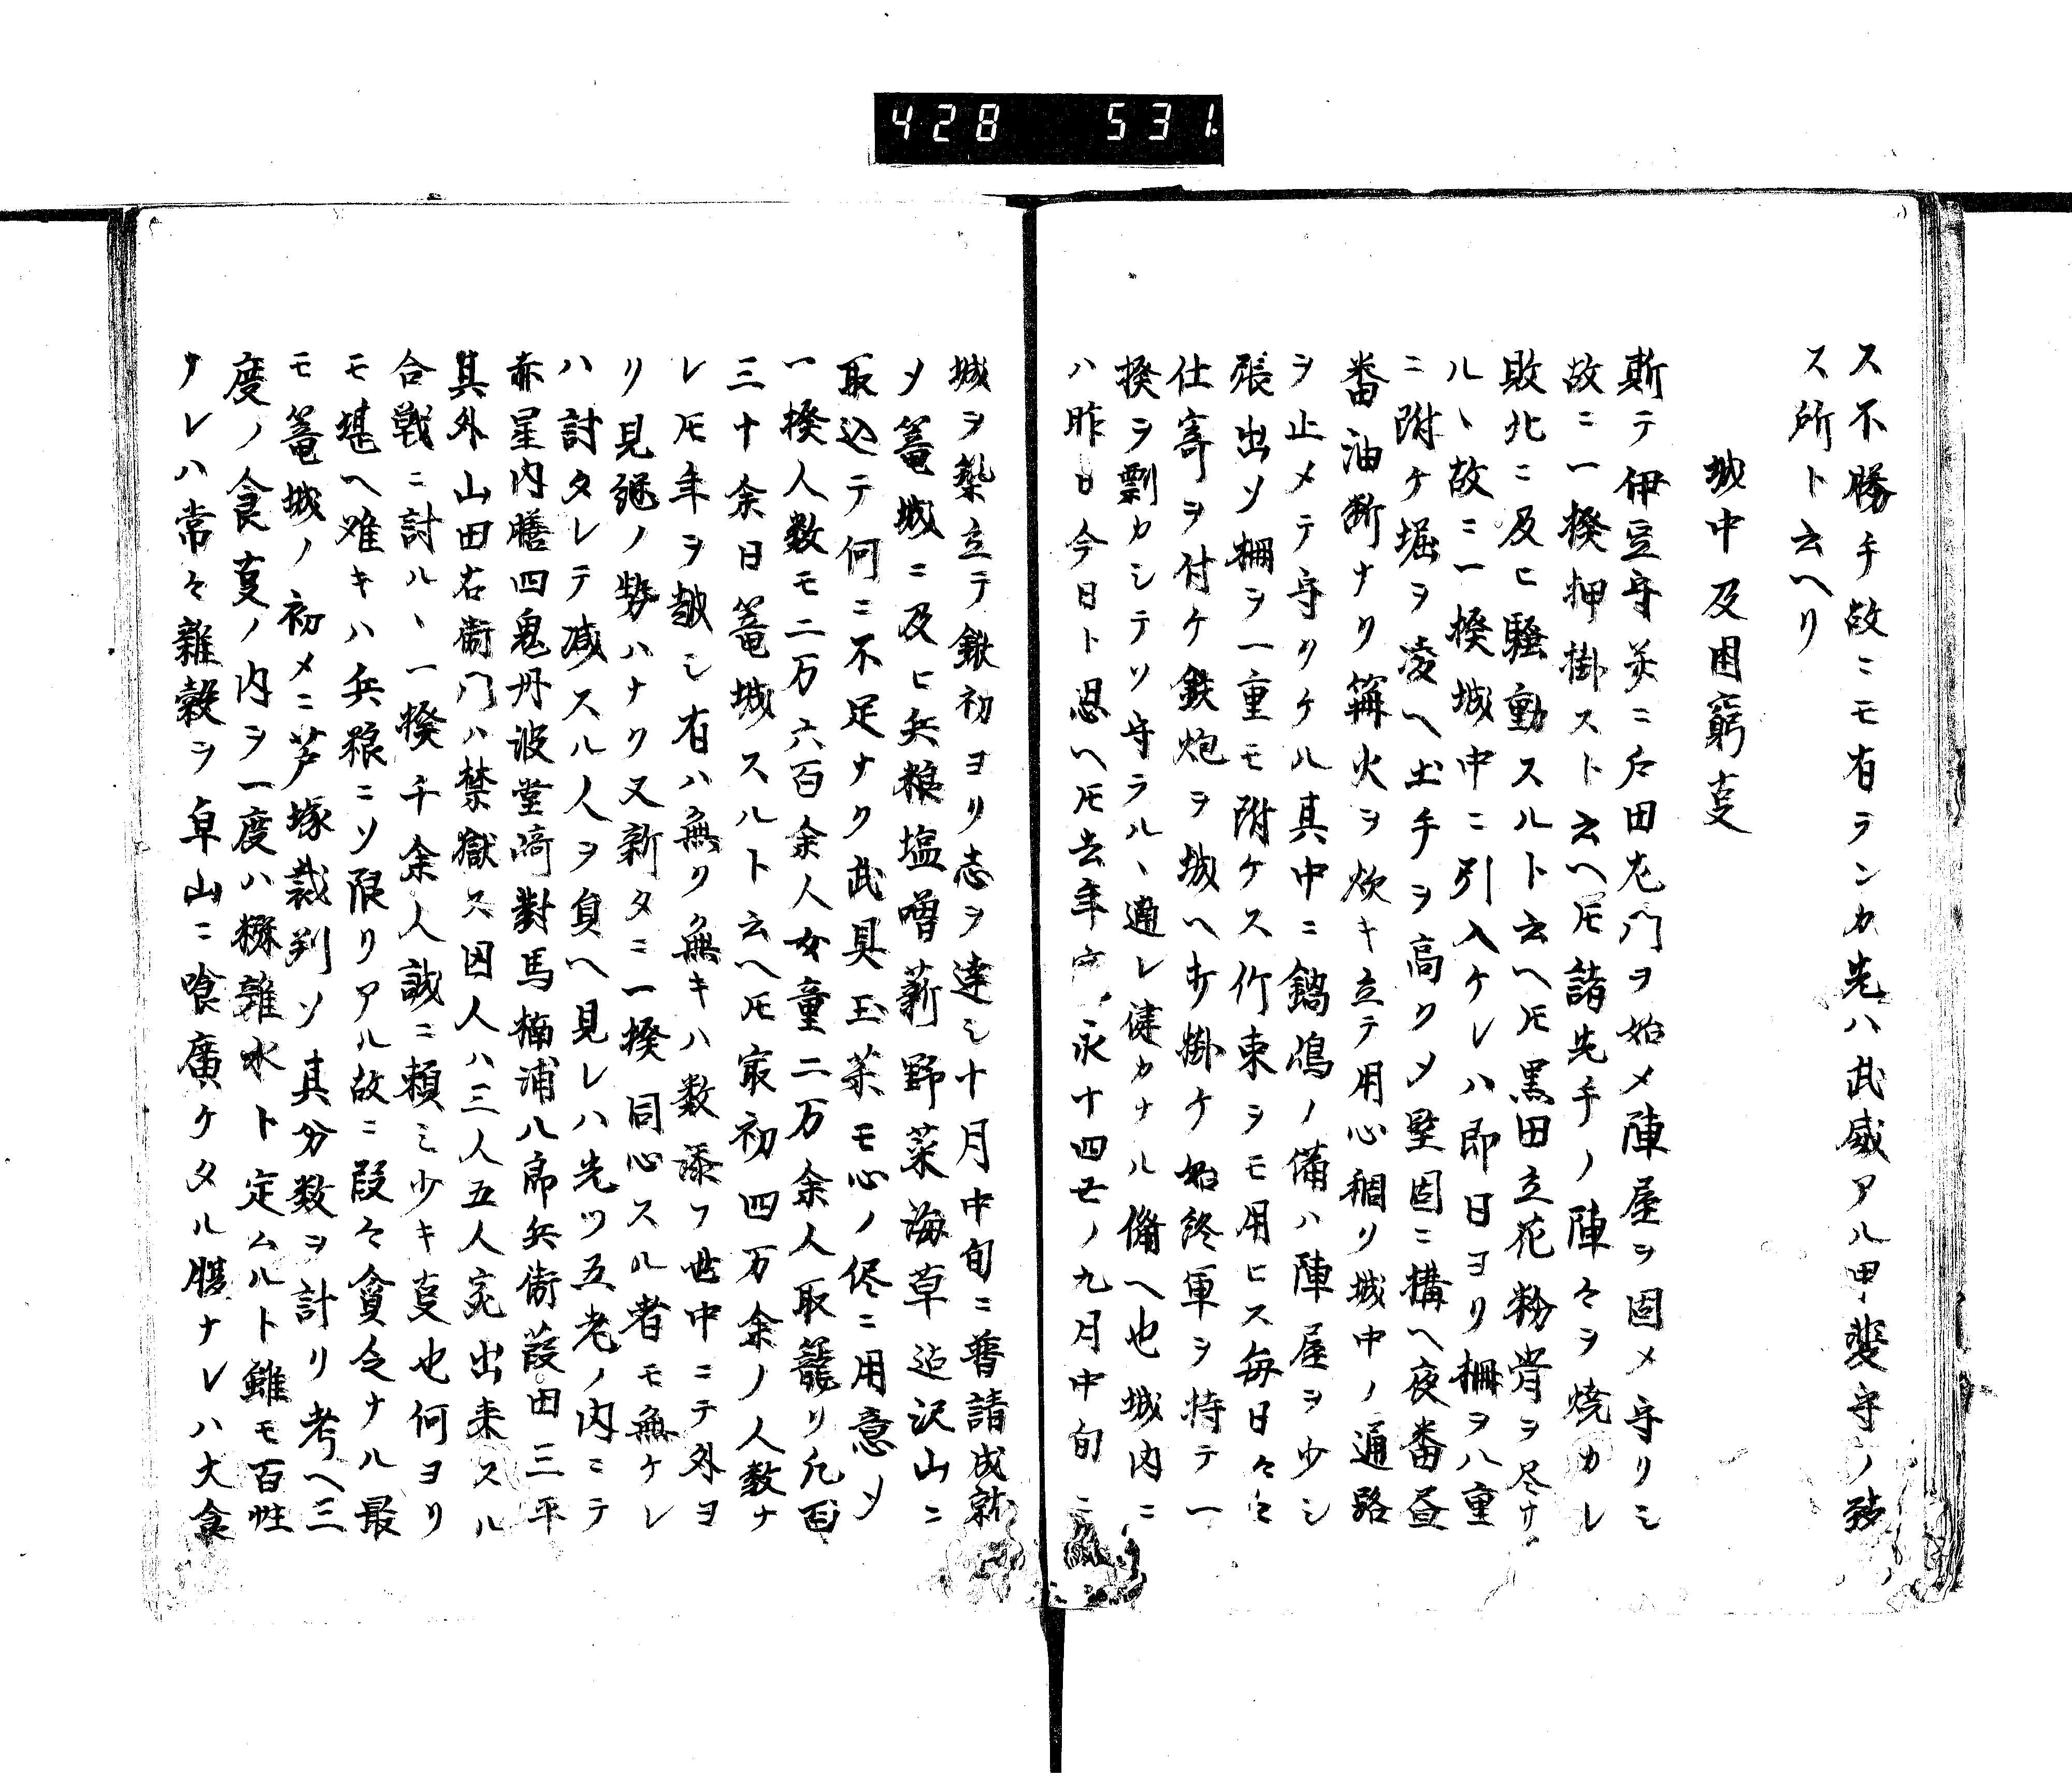 428 531
ス不勝手故ニモ有ランカ先ハ武威アル甲斐守ノ致
ス所ト云ヘリ
城中及困窮㕝
斯テ伊豆守并ニ戸田左門ヲ始メ陣屋ヲ固メ守リシ
故ニ一揆押掛ストト云ヘ𪜈諸先手ノ陣々ヲ焼カレ
敗北ニ及ヒ騒動スルト云ヘ𪜈黒田立花粉骨ヲ尽サ
ルヽ故ニ一揆城中ニ引入ケレハ即日ヨリ柵ヲ八重
ニ附ケ堀ヲ凌ヘ土手ヲ高クメ堅固ニ構ヘ夜番昼
番油断ナク篝火ヲ炊キ立テ用心稠リ城中ノ通路
ヲ止メテ守リケル其中ニ鍋嶋ノ備ハ陣屋ヲ少シ
張出ソ柵ヲ一重モ附ケス竹束ヲモ用ヒス毎日々々
仕寄ヲ付ケ鉄炮ヲ城ヘ打掛ケ始終軍ヲ持テ一
揆ヲ剽カシテソ守ラルヽ適レ健カナル備ヘ也城内ニ
ハ昨日今日ト思ヘ𪜈去年 永十四丑ノ九月中旬ニ
城ヲ築立テ鍬初ヨリ志ヲ達シ十月中旬ニ普請成就
ソ篭城ニ及ヒ兵粮塩噌薪野菜海草迠沢山ニ
取込テ何ニ不足ナク武具玉薬モ心ノ侭ニ用意ソ
一揆人数モ二万六百余人女童二万余人取籠リ凡百
三十余日篭城スルト云ヘ𪜈最初四万余ノ人数ナ
レ𪜈年ヲ越シ有ハ無リ無キハ数添フ世中ニテ外ヨ
リ見継ノ勢ハナク又新タニ一揆同心スル者モ無ケレ
ハ討タレテ減スル人ヲ負ヘ見レハ先ツ五老ノ内ニテ
赤星内膳四鬼丹波堂﨑對馬楠浦八郎兵衛葭田三平
其外山田右衛門ハ禁獄ス囚人ハ三人五人宛出来スル
合戦ニ討ルヽ一揆千余人誠ニ頼ミ少キ㕝也何ヨリ
モ堪ヘ难キハ兵粮ニソ限リアル故ニ段々貧乏ナル最
モ篭城ノ初メニ芦塚裁判ソ其分数ヲ計リ考ヘ三
度ノ食㕝ノ内ヲ一度ハ糘雑水ト定ムルト雖モ百姓
ナレハ常々雑穀ヲ卓山ニ喰廣ケタル腹ナレハ大食